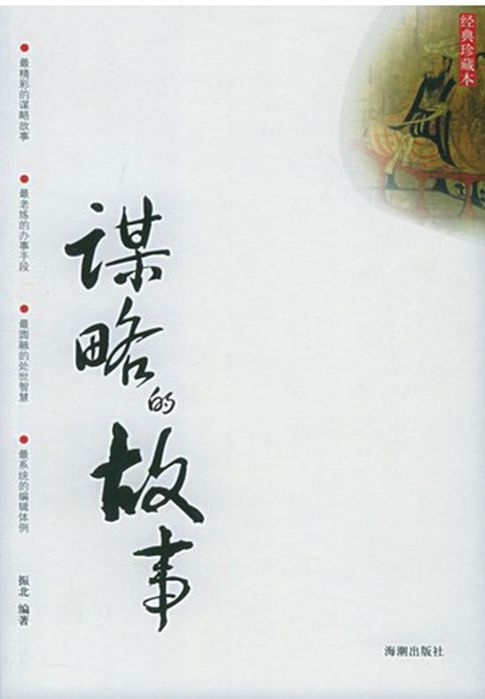 经典珍藏本
最精彩的谋略故事
最老练的办事手段
最圆融的处世智慧
最系统的编辑体例
谋略的故事
振北 编著
海潮出版社